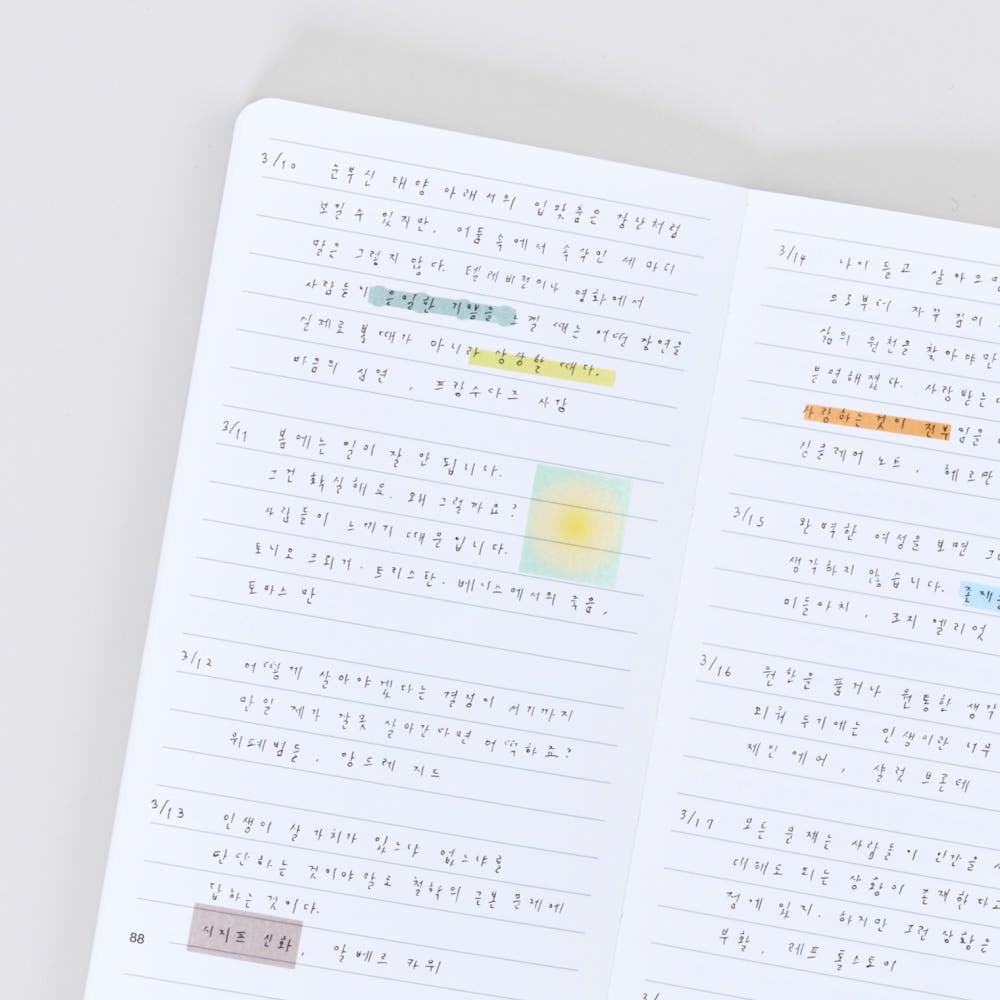 3/10 눈부신 태양 아래서의 입맞춤은 장난처럼
보일 수 있지만, 어둠 속에서 속삭인 세 마디
말은 그렇지 않다. 텔레비전이나 영화에서
사람들이 은밀한 기쁨을 느낄 때는 어떤 장면을
실제로 볼 때가 아니라 상상할 때다.
마음의 심연, 프랑수아즈 사강
3/11 봄에는 일이 잘 안 됩니다.
그건 확실해요. 왜 그럴까요?
사람들이 느끼기 때문입니다.
토니오 크뢰거·트리스탄·베니스에서의 죽음,
토마스 만
3/12 어떻게 살아야겠다는 결정이 서기까지
만일 제가 잘못 살아간다면 어떡하죠?
위폐범들, 앙드레 지드
3/13 인생이 살 가치가 있느냐 없느냐를
판단하는 것이야말로 철학의 근본 문제에
답하는 것이다.
시지프 신화, 알베르 카뮈
88
3/14 나이 들고 살아오면
으로부터 자꾸 깊이
삶의 원천을 찾아야만
분명해졌다. 사랑받는
사랑하는 것이 전부임을
싱클레어 노트, 헤르만
3/15 완벽한 여성을 보면
생각하지 않습니다. 존재
미들마치, 조지 엘리엇
3/16 원한을 품거나 원통한 생각
외워 두기에는 인생이란 너무
제인 에어, 샬럿 브론테
3/17 모든 문제는 사람들이 인간을
대해도 되는 상황이 존재한다고
점에 있지. 하지만 그런 상황은
부활, 레프 톨스토이